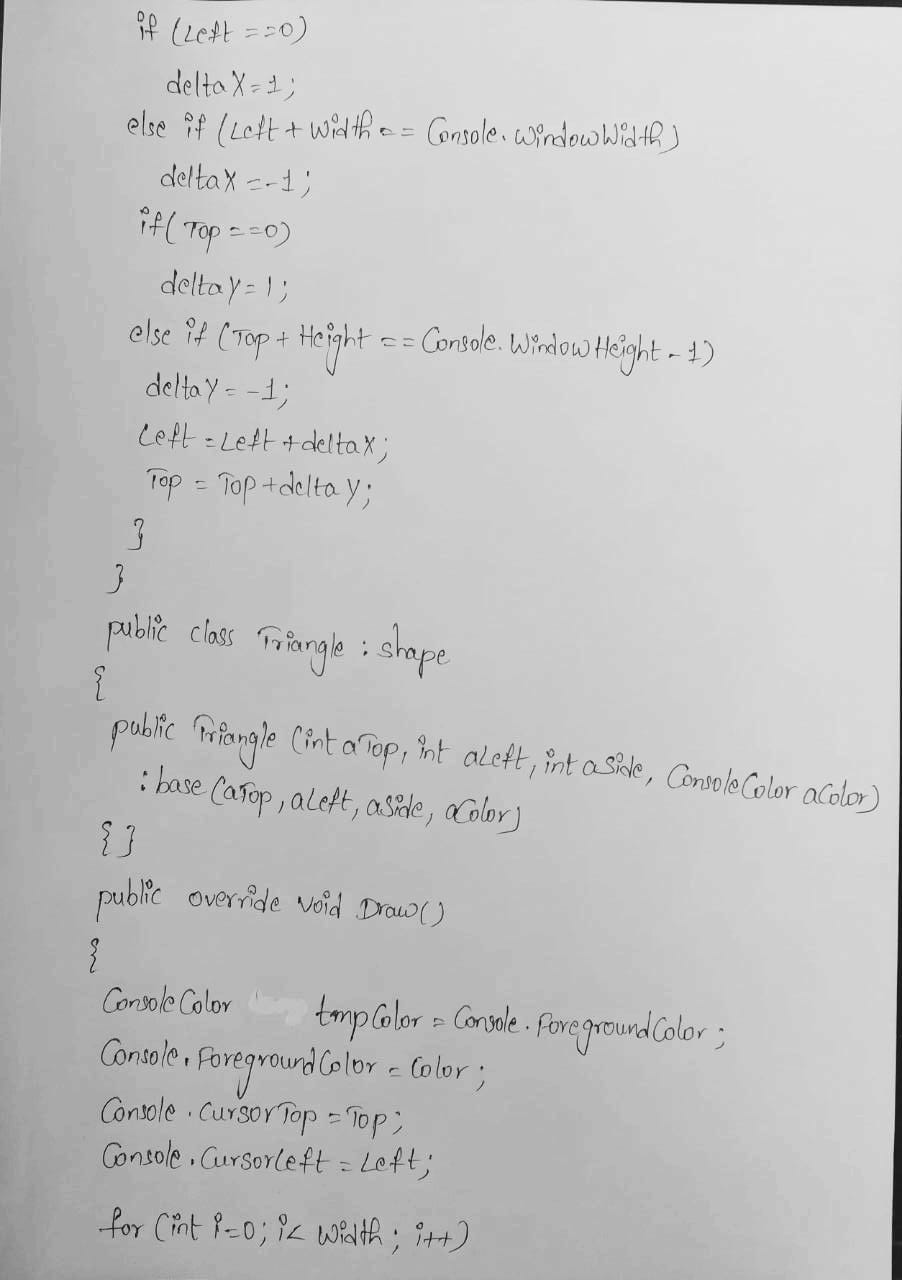 if (Left ==0)
deltaX=1;
else if (Left + Width == Console.WindowWidth)
deltaX =-1;
if( Top ==0)
deltaY=1;
else if (Top + Height == Console.WindowHeight - 1)
deltaY = -1;
Left = Left +deltaX;
Top = Top +deltaY;
}
}
public class Triangle : shape
{
public Triangle (int aTop, int aLeft, int aSide, ConsoleColor aColor)
: base (aTop, aLeft, aSide, aColor)
{ }
public override void Draw()
{
ConsoleColor tmpColor = Console.ForegroundColor;
Console.ForegroundColor = Color;
Console.CursorTop = Top;
Console.CursorLeft = Left;
for (int i=0; i< Width; i++)